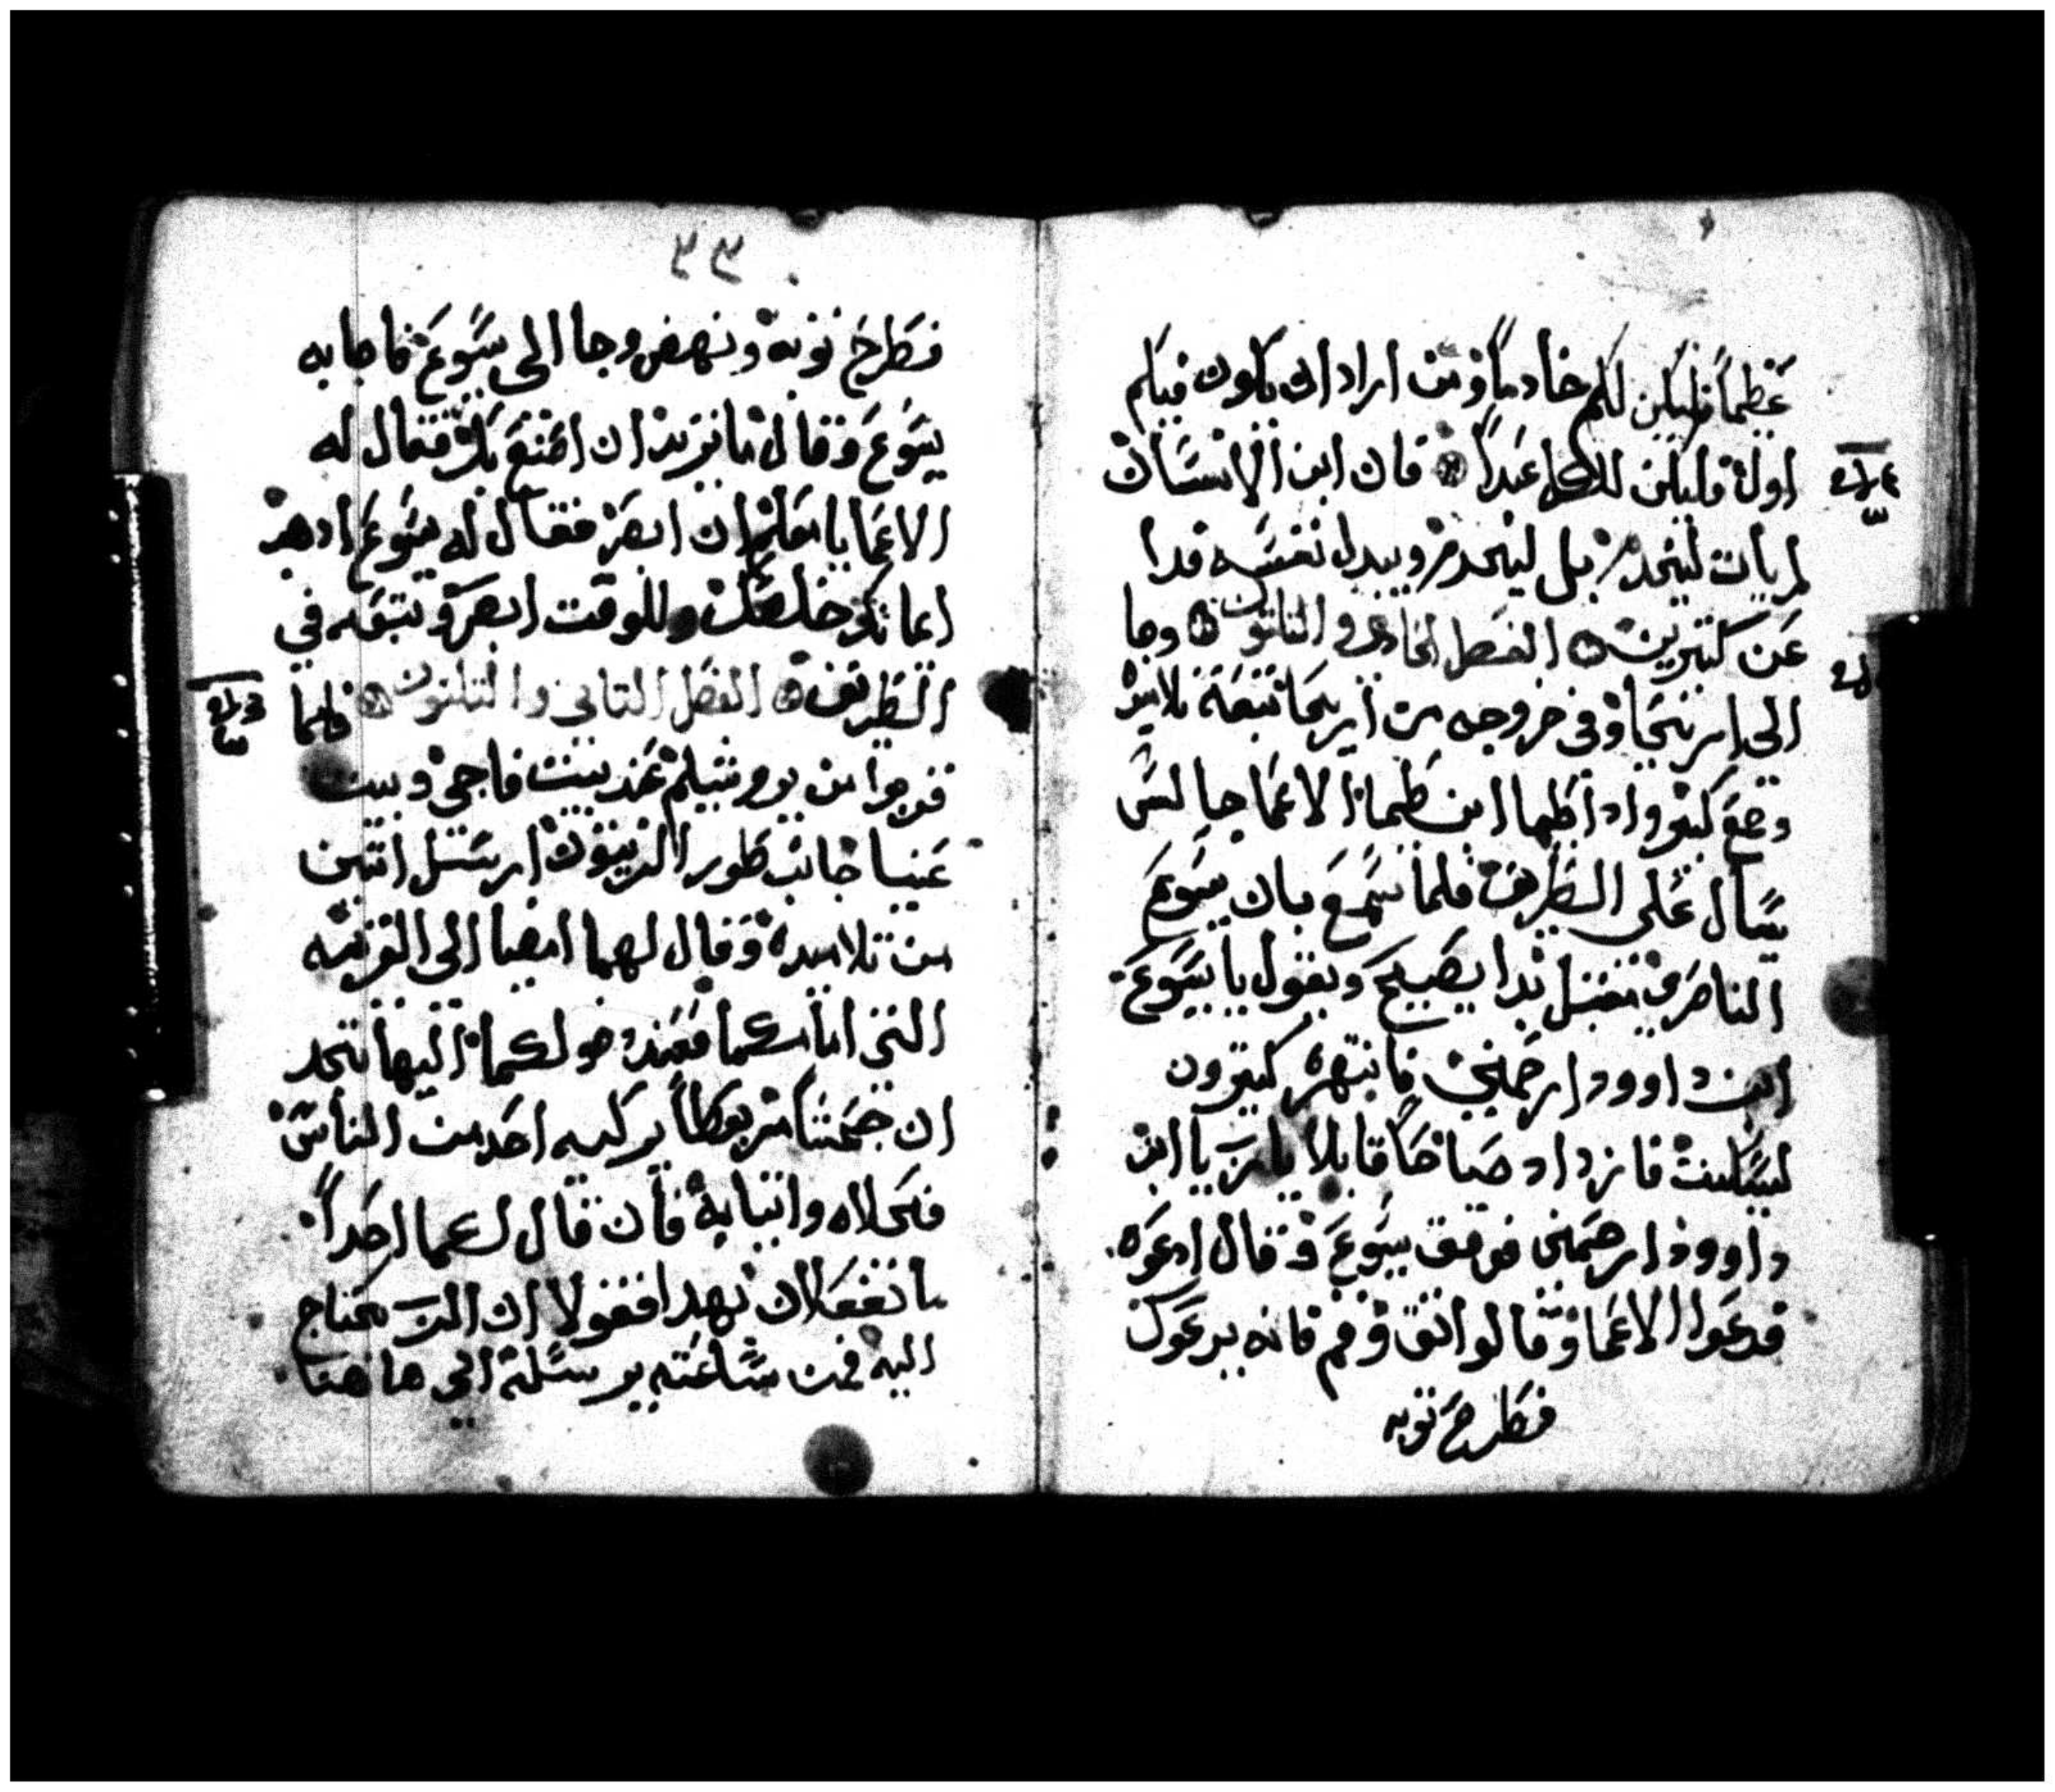 عظيماً فليكن لكم خادماً ومن اراد ان يكون فيكم
اولا فليكن للكل عبداً فان ابن الانسان
لم يات ليخدم بل ليخدم ويبدل نفسه فدا
عن كتيرين الفصل الحادي والتلتون وجا
الى اريحا وفى خروجه من اريحا تبعه تلاميذه
وجمع كتير واذا طيما ابن طيما الاعما جالس
يسال على الطريق فلما سمع بان يسوع
الناصري مقبل بدا يصيح ويقول يا يسوع
ابن داوود ارحمني فانتهره كتيرون
ليسكت فازداد صياحاً قايلا يارب يا ابن
داوود ارحمنى فوقف يسوع وقال ادعوه
فدعوا الاعما وقالوا اتق وقم فانه يدعوك
فطرح توبه
٣٣
فطرح توبه ونهض وجا الى يسوع فاجابه
يسوع وقال ما تريد ان اصنع بك فقال له
الاعما يا معلم ان ابصر فقال له يسوع ادهب
ايمانك خلصك وللوقت ابصر وتبعه في
الطريق الفصل التاني والتلتون فلما
قربوا من يروشليم عند بيت فاجى وبيت
عنيا جانب طور الزيتون ارسل اتنين
من تلاميده وقال لهما امضيا الى القريه
التى امامكما فعند دخولكما اليها تجد
ان جحشا مربوطاً لم يركبه احد من الناس
فحلاه واتيا به فان قال لكما احداً
ما تفعلان بهدا فقولا ان الرب محتاج
اليه فمن ساعته يرسله الى هاهنا